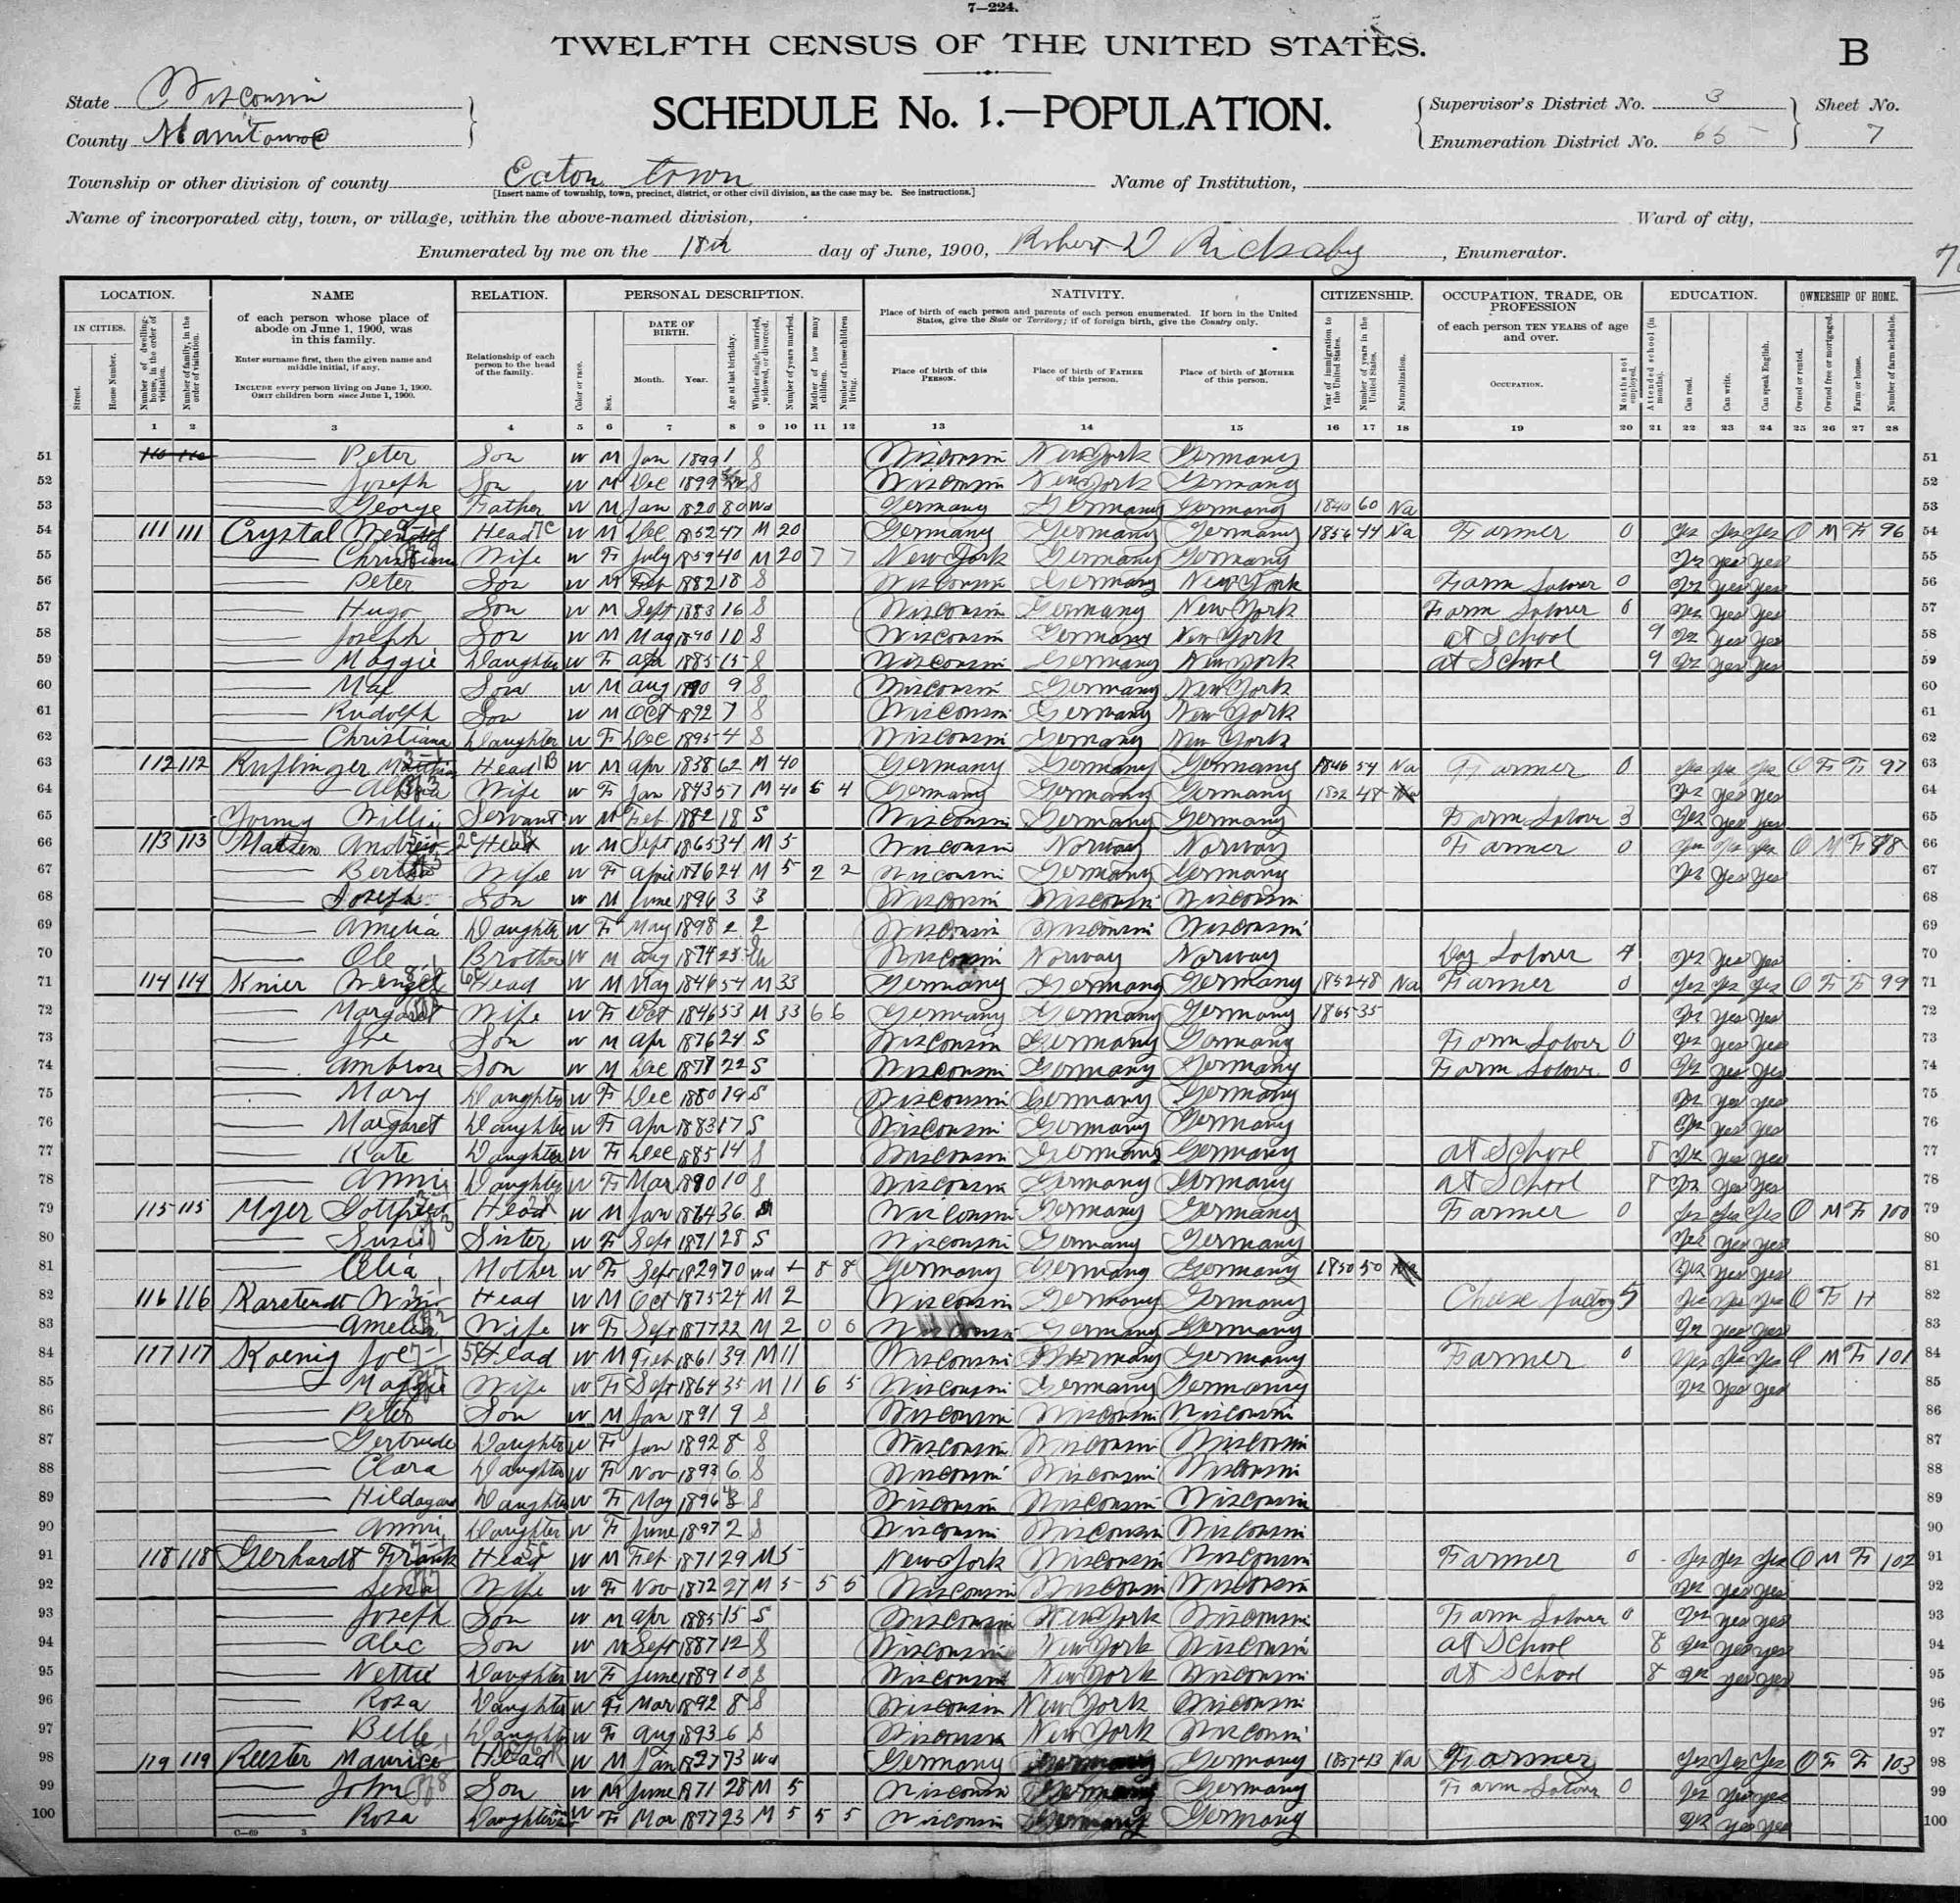 7—224.
TWELFTH CENSUS OF THE UNITED STATES.
B
State Wisconsin
County Manitowoc
SCHEDULE No. 1.—POPULATION.
Supervisor's District No. 3
Enumeration District No. 65
Sheet No.
7
Township or other division of county Eaton town
[Insert name of township, town, precinct, district, or other civil division, as the case may be. See instructions.]
Name of Institution,
Name of incorporated city, town, or village, within the above-named division,
Ward of city,
Enumerated by me on the 18th day of June, 1900, Robert D , Enumerator.
7
LOCATION. NAME RELATION. PERSONAL DESCRIPTION. NATIVITY. CITIZENSHIP. OCCUPATION, TRADE, OR PROFESSION EDUCATION. OWNERSHIP OF HOME.
IN CITIES. Street. House Number. Number of dwelling-house, in the order of visitation. Number of family, in the order of visitation.
of each person whose place of abode on June 1, 1900, was in this family.
Enter surname first, then the given name and middle initial, if any.
INCLUDE every person living on June 1, 1900. OMIT children born since June 1, 1900.
Relationship of each person to the head of the family.
Color or race. Sex. DATE OF BIRTH. Month. Year. Age at last birthday. Whether single, married, widowed, or divorced. Number of years married. Mother of how many children. Number of these children living.
Place of birth of each person and parents of each person enumerated. If born in the United States, give the State or Territory; if of foreign birth, give the Country only.
Place of birth of this PERSON. Place of birth of FATHER of this person. Place of birth of MOTHER of this person.
Year of immigration to the United States. Number of years in the United States. Naturalization.
of each person TEN YEARS of age and over.
OCCUPATION. Months not employed. Attended school (in months). Can read. Can write. Can speak English. Owned or rented. Owned free or mortgaged. Farm or house. Number of farm schedule.
1 2 3 4 5 6 7 8 9 10 11 12 13 14 15 16 17 18 19 20 21 22 23 24 25 26 27 28
51 Peter Son W M Jan 1899 1 S Wisconsin New York Germany 51
52 Joseph Son W M Dec 1899 S Wisconsin New York Germany 52
53 George Father W M Jan 1820 80 Wd Germany Germany Germany 1840 60 Na 53
54 111 111 Crystal Head W M Dec 1852 47 M 20 Germany Germany Germany 1856 44 Na Farmer 0 Yes Yes Yes O M F 96 54
55 Christiana Wife W F July 1859 40 M 20 7 7 New York Germany Germany Yes Yes Yes 55
56 Peter Son W M Feb 1882 18 S Wisconsin Germany New York Farm Laborer 0 Yes Yes Yes 56
57 Hugo Son W M Sept 1883 16 S Wisconsin Germany New York Farm Laborer 0 Yes Yes Yes 57
58 Joseph Son W M May 1890 10 S Wisconsin Germany New York at School 9 Yes Yes Yes 58
59 Maggie Daughter W F Apr 1885 15 S Wisconsin Germany New York at School 9 Yes Yes Yes 59
60 Max Son W M Aug 1890 9 S Wisconsin Germany New York 60
61 Rudolph Son W M Oct 1892 7 S Wisconsin Germany New York 61
62 Christiana Daughter W F Dec 1895 4 S Wisconsin Germany New York 62
63 112 112 Ruflinger Head W M Apr 1838 62 M 40 Germany Germany Germany 1846 54 Na Farmer 0 Yes Yes Yes O F F 97 63
64 Wife W F Jan 1843 57 M 40 4 Germany Germany Germany 1852 48 Yes Yes Yes 64
65 Young Willie Servant W M Feb 1882 18 S Wisconsin Germany Germany Farm Laborer 3 Yes Yes Yes 65
66 113 113 Matsen Andrew Head W M Sept 1865 34 M 5 Wisconsin Norway Norway Farmer 0 Yes Yes Yes O M F 98 66
67 Bertha Wife W F April 1876 24 M 5 2 2 Wisconsin Germany Germany Yes Yes Yes 67
68 Joseph Son W M June 1896 3 Wisconsin Wisconsin Wisconsin 68
69 Amelia Daughter W F May 1898 2 Wisconsin Wisconsin Wisconsin 69
70 Ole Brother W M Aug 1874 25 Wisconsin Norway Norway Day Laborer 4 Yes Yes Yes 70
71 114 114 Knier Wenzel Head W M May 1846 54 M 33 Germany Germany Germany 1852 48 Na Farmer 0 Yes Yes Yes O F F 99 71
72 Margaret Wife W F Oct 1846 53 M 33 6 6 Germany Germany Germany 1865 35 Yes Yes Yes 72
73 Joe Son W M Apr 1876 24 S Wisconsin Germany Germany Farm Laborer 0 Yes Yes Yes 73
74 Ambrose Son W M Dec 1877 22 S Wisconsin Germany Germany Farm Laborer 0 Yes Yes Yes 74
75 Mary Daughter W F Dec 1880 19 S Wisconsin Germany Germany Yes Yes Yes 75
76 Margaret Daughter W F Apr 1883 17 S Wisconsin Germany Germany Yes Yes Yes 76
77 Kate Daughter W F Dec 1885 14 S Wisconsin Germany Germany at School 8 Yes Yes Yes 77
78 Annie Daughter W F Mar 1890 10 S Wisconsin Germany Germany at School 8 Yes Yes Yes 78
79 115 115 Myer Gottfried Head W M Jan 1864 36 Wisconsin Germany Germany Farmer 0 Yes Yes Yes O M F 100 79
80 Susie Sister W F Sept 1871 28 S Wisconsin Germany Germany Yes Yes Yes 80
81 Mother W F Sept 1829 70 Wd 8 8 Germany Germany Germany 1850 50 Yes Yes Yes 81
82 116 116 Karstendt Wm Head W M Oct 1875 24 M 2 Wisconsin Germany Germany Cheese factory 5 Yes Yes Yes O F H 82
83 Amelia Wife W F Sept 1877 22 M 2 0 0 Wisconsin Germany Germany Yes Yes Yes 83
84 117 117 Koenig Joe Head W M Feb 1861 39 M 11 Wisconsin Germany Germany Farmer 0 Yes Yes Yes O M F 101 84
85 Maggie Wife W F Sept 1864 35 M 11 6 5 Wisconsin Germany Germany Yes Yes Yes 85
86 Peter Son W M Jan 1891 9 S Wisconsin Wisconsin Wisconsin 86
87 Gertrude Daughter W F Jan 1892 8 S Wisconsin Wisconsin Wisconsin 87
88 Clara Daughter W F Nov 1893 6 S Wisconsin Wisconsin Wisconsin 88
89 Hildagard Daughter W F May 1896 S Wisconsin Wisconsin Wisconsin 89
90 Annie Daughter W F June 1897 2 S Wisconsin Wisconsin Wisconsin 90
91 118 118 Gerhardt Frank Head W M Feb 1871 29 M 5 New York Wisconsin Wisconsin Farmer 0 Yes Yes Yes O M F 102 91
92 Lena Wife W F Nov 1872 27 M 5 5 5 Wisconsin Wisconsin Wisconsin Yes Yes Yes 92
93 Joseph Son W M Apr 1885 15 S Wisconsin New York Wisconsin Farm Laborer 0 Yes Yes Yes 93
94 Alec Son W M Sept 1887 12 S Wisconsin New York Wisconsin at School 8 Yes Yes Yes 94
95 Nettie Daughter W F June 1889 10 S Wisconsin New York Wisconsin at School 8 Yes Yes Yes 95
96 Rosa Daughter W F Mar 1892 8 S Wisconsin New York Wisconsin 96
97 Belle Daughter W F Aug 1893 6 S Wisconsin New York Wisconsin 97
98 119 119 Reester Maurice Head W M Jan 1827 73 Wd Germany Germany Germany 1857 43 Na Farmer Yes Yes Yes O F F 103 98
99 John Son W M June 1871 28 M 5 Wisconsin Germany Germany Farm Laborer 0 Yes Yes Yes 99
100 Rosa Daughter in W F Mar 1877 23 M 5 5 5 Wisconsin Germany Germany Yes Yes Yes 100
C—69 3